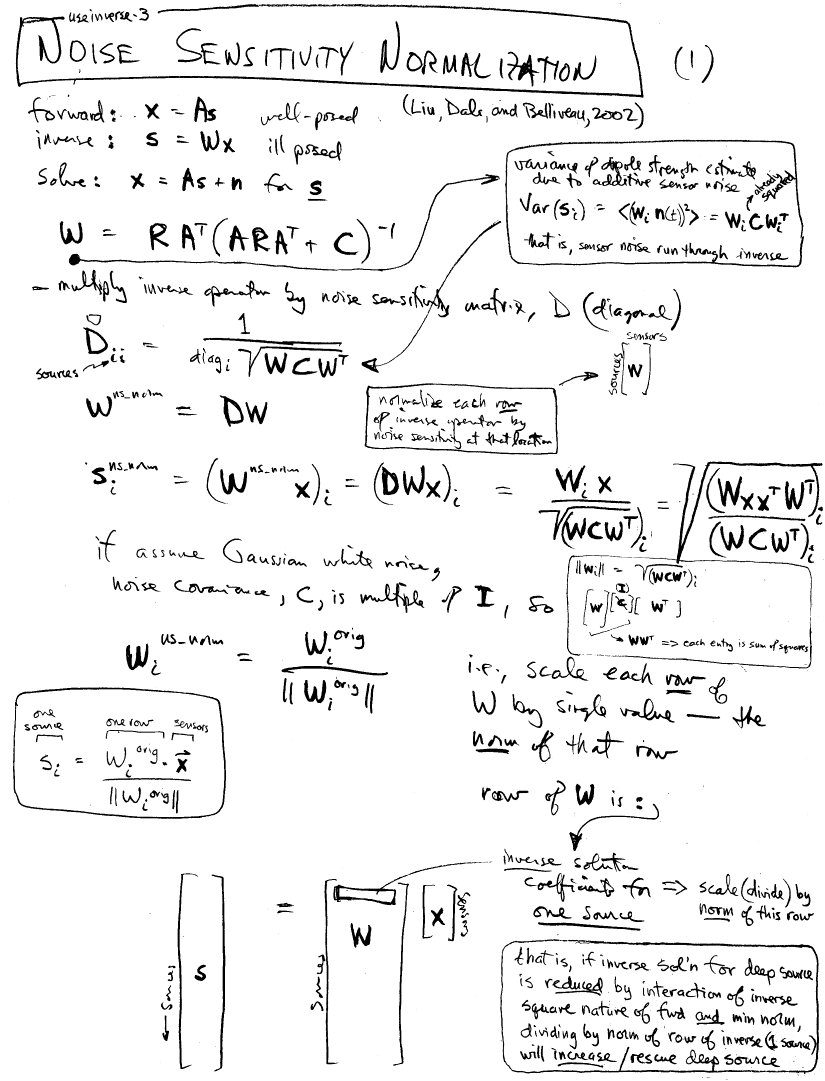 useinverse-3
NOISE SENSITIVITY NORMALIZATION (1)
forward: x = As well-posed (Liu, Dale, and Belliveau, 2002)
inverse: s = Wx ill posed
Solve: x = As + n for s
W = RAᵀ(ARAᵀ + C)⁻¹
variance of dipole strength estimate
due to additive sensor noise
already squared
Var(sᵢ) = <(wᵢ n(t))²> = Wᵢ C Wᵢᵀ
that is, sensor noise run through inverse
– multiply inverse operator by noise sensitivity matrix, D (diagonal)
Dᵢᵢ = 1 / diagᵢ √WCWᵀ
sources
sensors
sources [W]
Wⁿˢ⁻ⁿᵒʳᵐ = DW
normalize each row
of inverse operator by
noise sensitivity at that location
sᵢⁿˢ⁻ⁿᵒʳᵐ = (Wⁿˢ⁻ⁿᵒʳᵐ x)ᵢ = (DWx)ᵢ = Wᵢ x / √(WCWᵀ)ᵢ = √((WxxᵀWᵀ)ᵢ / (WCWᵀ)ᵢ)
if assume Gaussian white noise,
noise covariance, C, is multiple of I, so
||wᵢ|| = √(WCWᵀ)ᵢ
I
[W][C][Wᵀ]
WWᵀ => each entry is sum of squares
Wᵢⁿˢ⁻ⁿᵒʳᵐ = Wᵢᵒʳⁱᵍ / ||Wᵢᵒʳⁱᵍ||
i.e., scale each row of
W by single value — the
norm of that row
one source
one row
sensors
sᵢ = Wᵢᵒʳⁱᵍ · x⃗ / ||Wᵢᵒʳⁱᵍ||
row of W is:
inverse solution
coefficients for => scale (divide) by
one source norm of this row
← sources [s] = sources [W] [x] sensors
that is, if inverse sol'n for deep source
is reduced by interaction of inverse
square nature of fwd and min norm,
dividing by norm of row of inverse (1 source)
will increase/rescue deep source